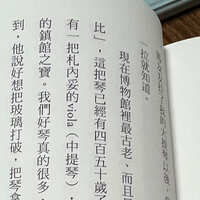 大提琴以後，
拉就知道。
現在博物館裡最古老、而且
比」，這把琴已經有四百五十歲了
有一把札內妥的viola（中提琴），
的鎮館之寶。我們好琴真的很多，
到，他說好想把玻璃打破，把琴拿